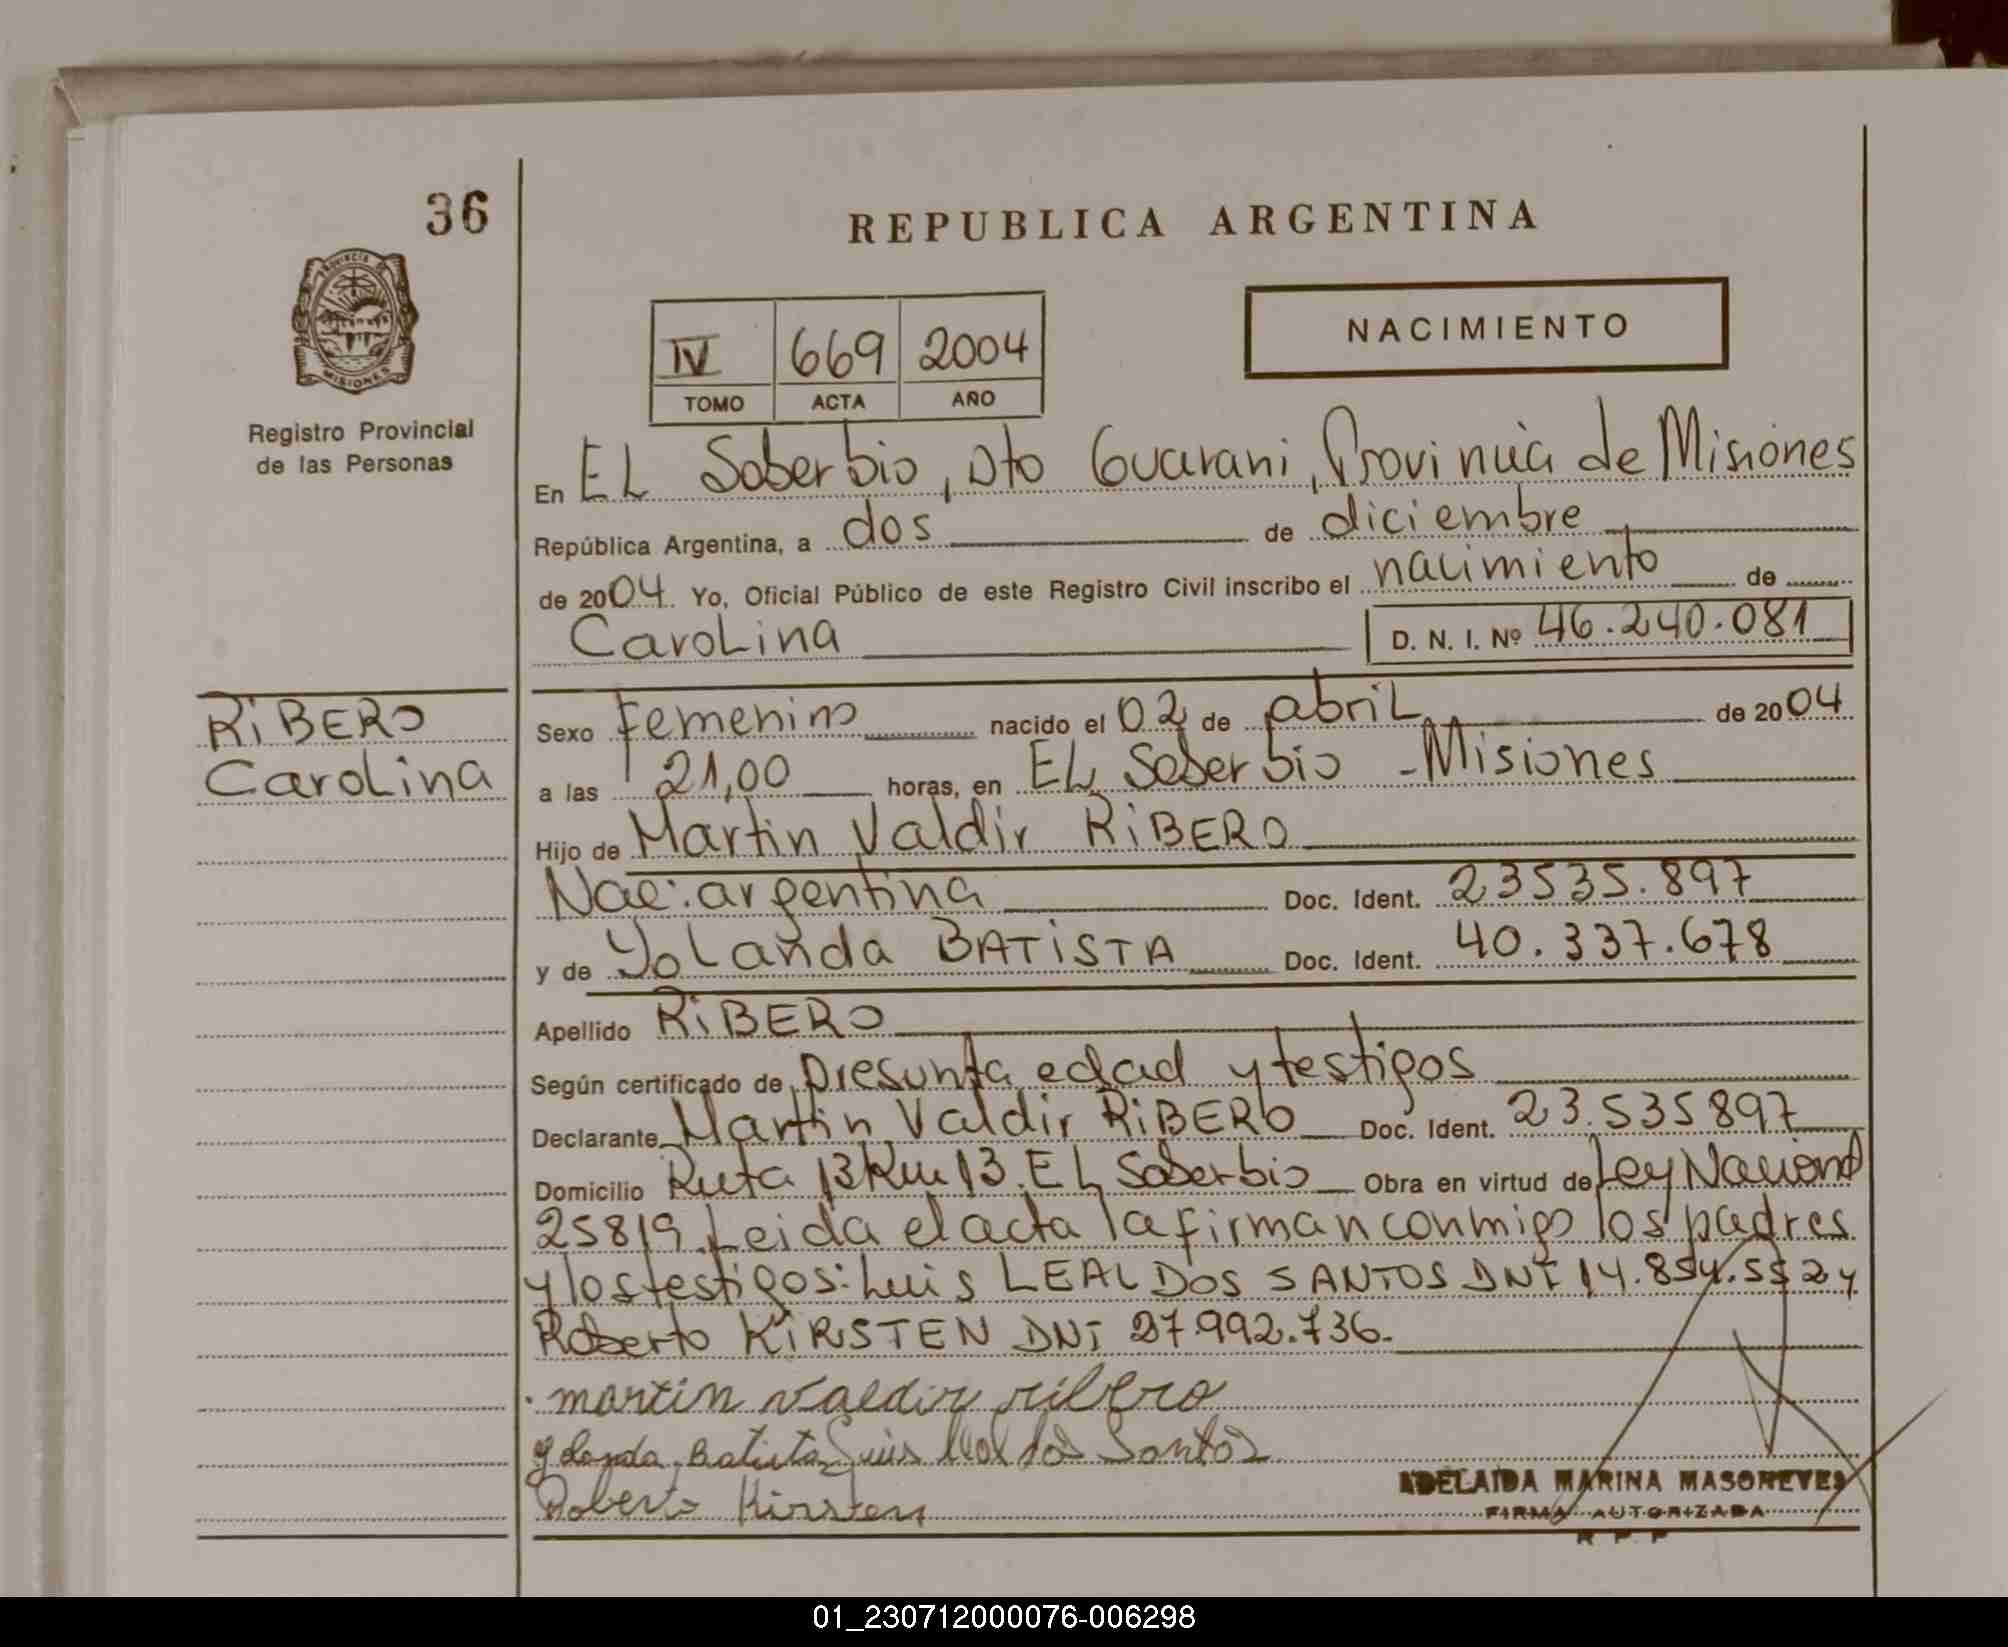 36
REPUBLICA ARGENTINA
PROVINCIA DE
MISIONES
Registro Provincial
de las Personas
IV 669 2004
TOMO ACTA AÑO
NACIMIENTO
En EL Soberbio, Dto Guarani, Provincia de Misiones
República Argentina, a dos de diciembre
de 2004. Yo, Oficial Público de este Registro Civil inscribo el nacimiento de
Carolina D. N. I. Nº 46.240.081
RiBERO
Carolina
Sexo Femenino nacido el 02 de abril de 2004
a las 21,00 horas, en EL Soberbio - Misiones
Hijo de Martin Valdir RiBERO
Nac: argentina Doc. Ident. 23535.897
y de Yolanda BATiSTA Doc. Ident. 40.337.678
Apellido RiBERO
Según certificado de presunta edad y testigos
Declarante Martin Valdir RiBERO Doc. Ident. 23.535897
Domicilio Ruta 13 Km 13. EL Soberbio Obra en virtud de Ley Nacional
25819. Leida el acta la firman conmigo los padres
y los testigos: Luis LEAL DOS SANTOS DNI 14.854.552 y
Roberto KiRSTEN DNi 27.992.736.
martin valdir ribero
Yolanda Batista Luis Leal dos Santos
Roberto Kirsten
ADELAIDA MARINA MASONEVES
FIRMA AUTORIZADA
R P P
01_230712000076-006298